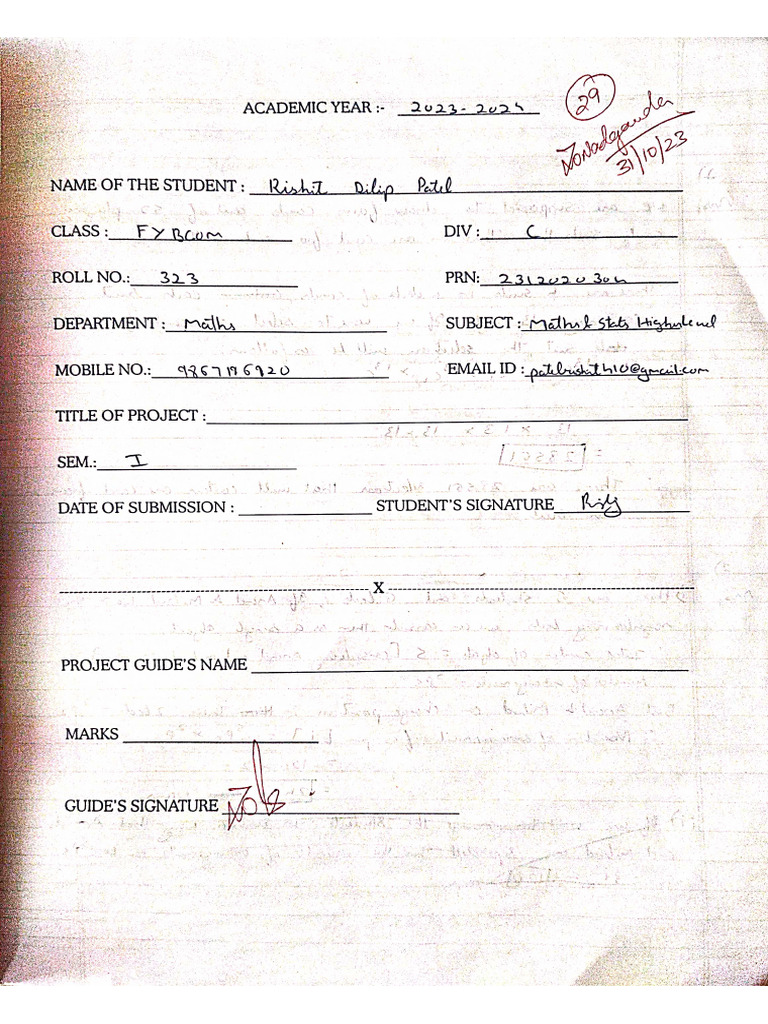 ACADEMIC YEAR :- 2023-2024
29
31/10/23
NAME OF THE STUDENT : Rishit Dilip Patel
CLASS : FYBCOM DIV : C
ROLL NO.: 323 PRN: 2312020304
DEPARTMENT : Maths SUBJECT : Maths & Stats Higher Level
MOBILE NO.: 9867196920 EMAIL ID : patelrishit410@gmail.com
TITLE OF PROJECT :
SEM.: I
DATE OF SUBMISSION : STUDENT'S SIGNATURE
X
PROJECT GUIDE'S NAME
MARKS
GUIDE'S SIGNATURE